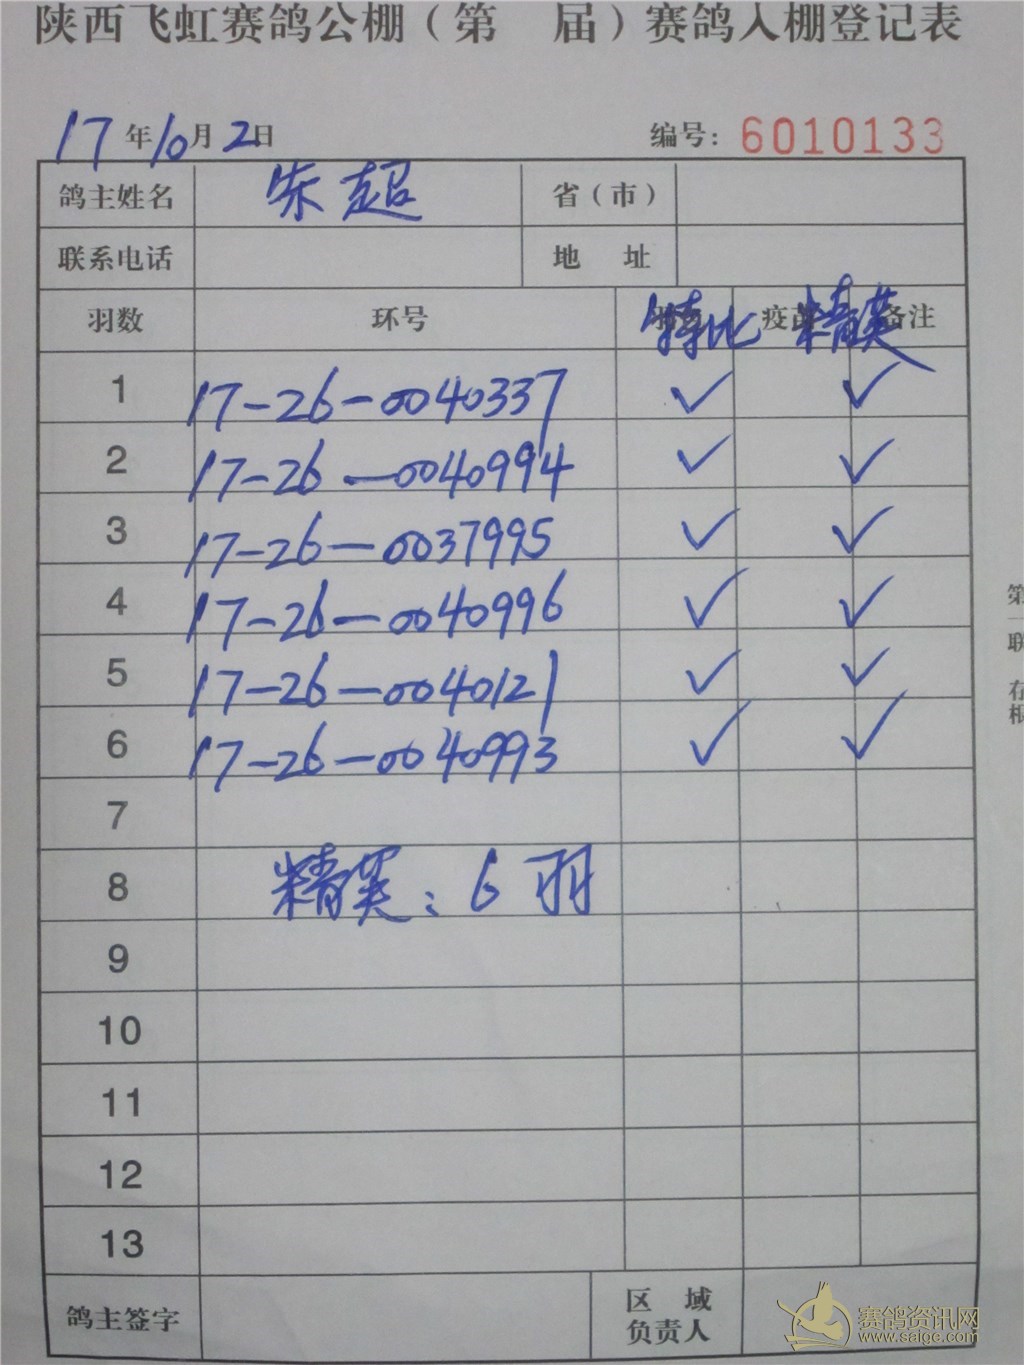 陕西飞虹赛鸽公棚（第 届）赛鸽入棚登记表
17年10月2日 编号：6010133
鸽主姓名 朱超 省（市）
联系电话 地 址
羽数 环号 特比 疫苗 精英 备注
1 17-26-0040337 ✓ ✓
2 17-26-0040994 ✓ ✓
3 17-26-0037995 ✓ ✓
4 17-26-0040996 ✓ ✓
5 17-26-0040121 ✓ ✓
6 17-26-0040993 ✓ ✓
7
8 精英：6羽
9
10
11
12
13
鸽主签字 区 域
负责人
第一联 存根
赛鸽资讯网
www.saige.com